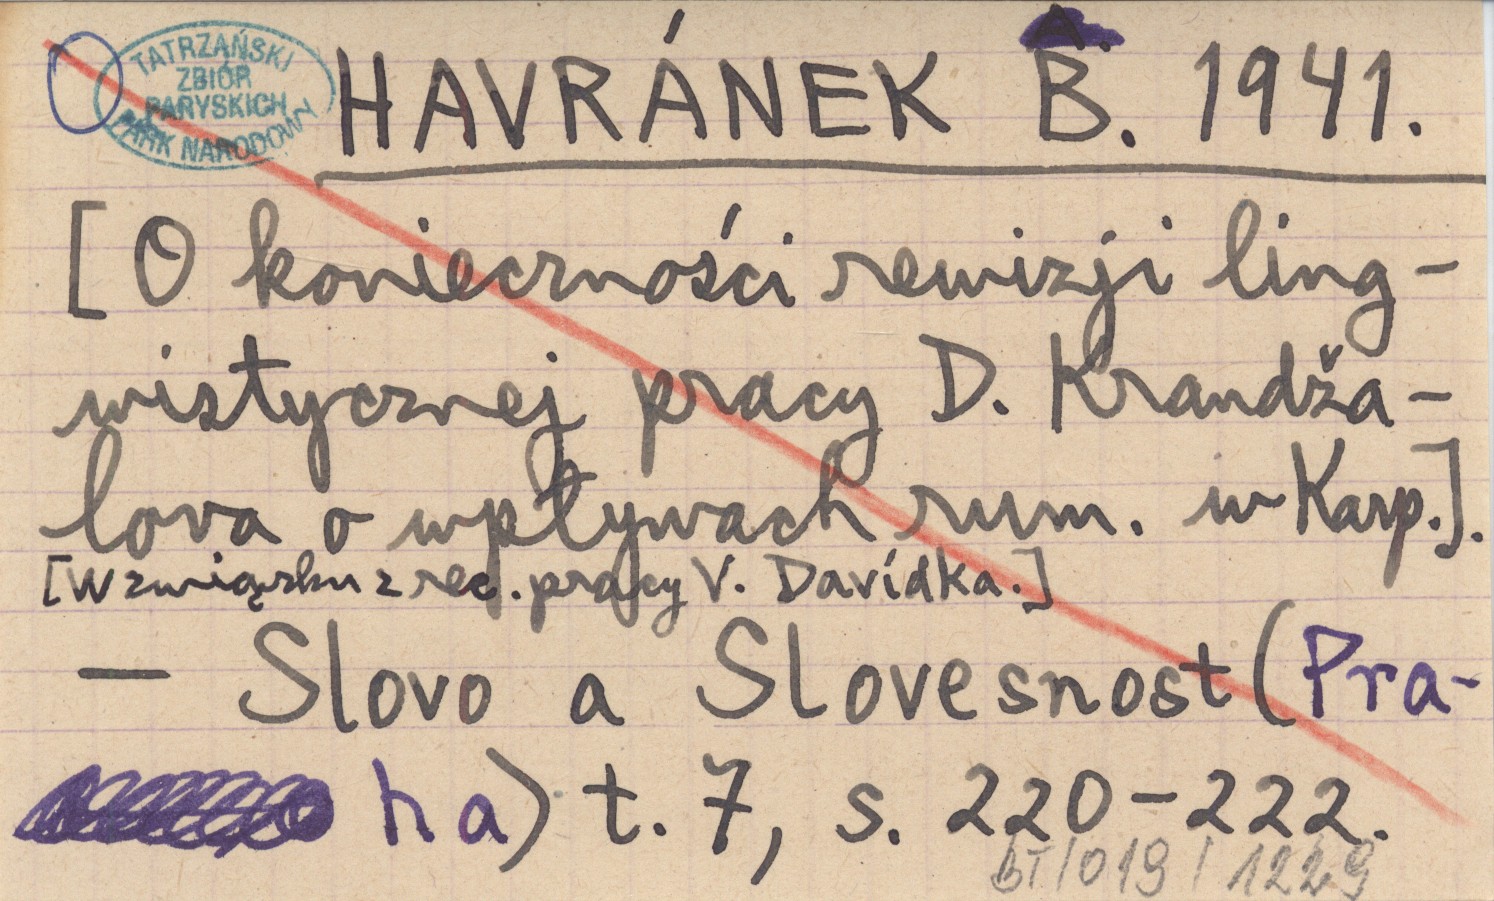 TATRZAŃSKI
ZBIÓR
PARYSKICH
PARK NARODOWY
HAVRÁNEK B. 1941.
[O konieczności rewizji ling-
wistycznej pracy D. Krandža-
lova o wpływach rum. w Karp.].
[W związku z rec. pracy V. Davídka.]
— Slovo a Slovesnost (Pra-
ha) t. 7, s. 220-222.
BT/019/1229